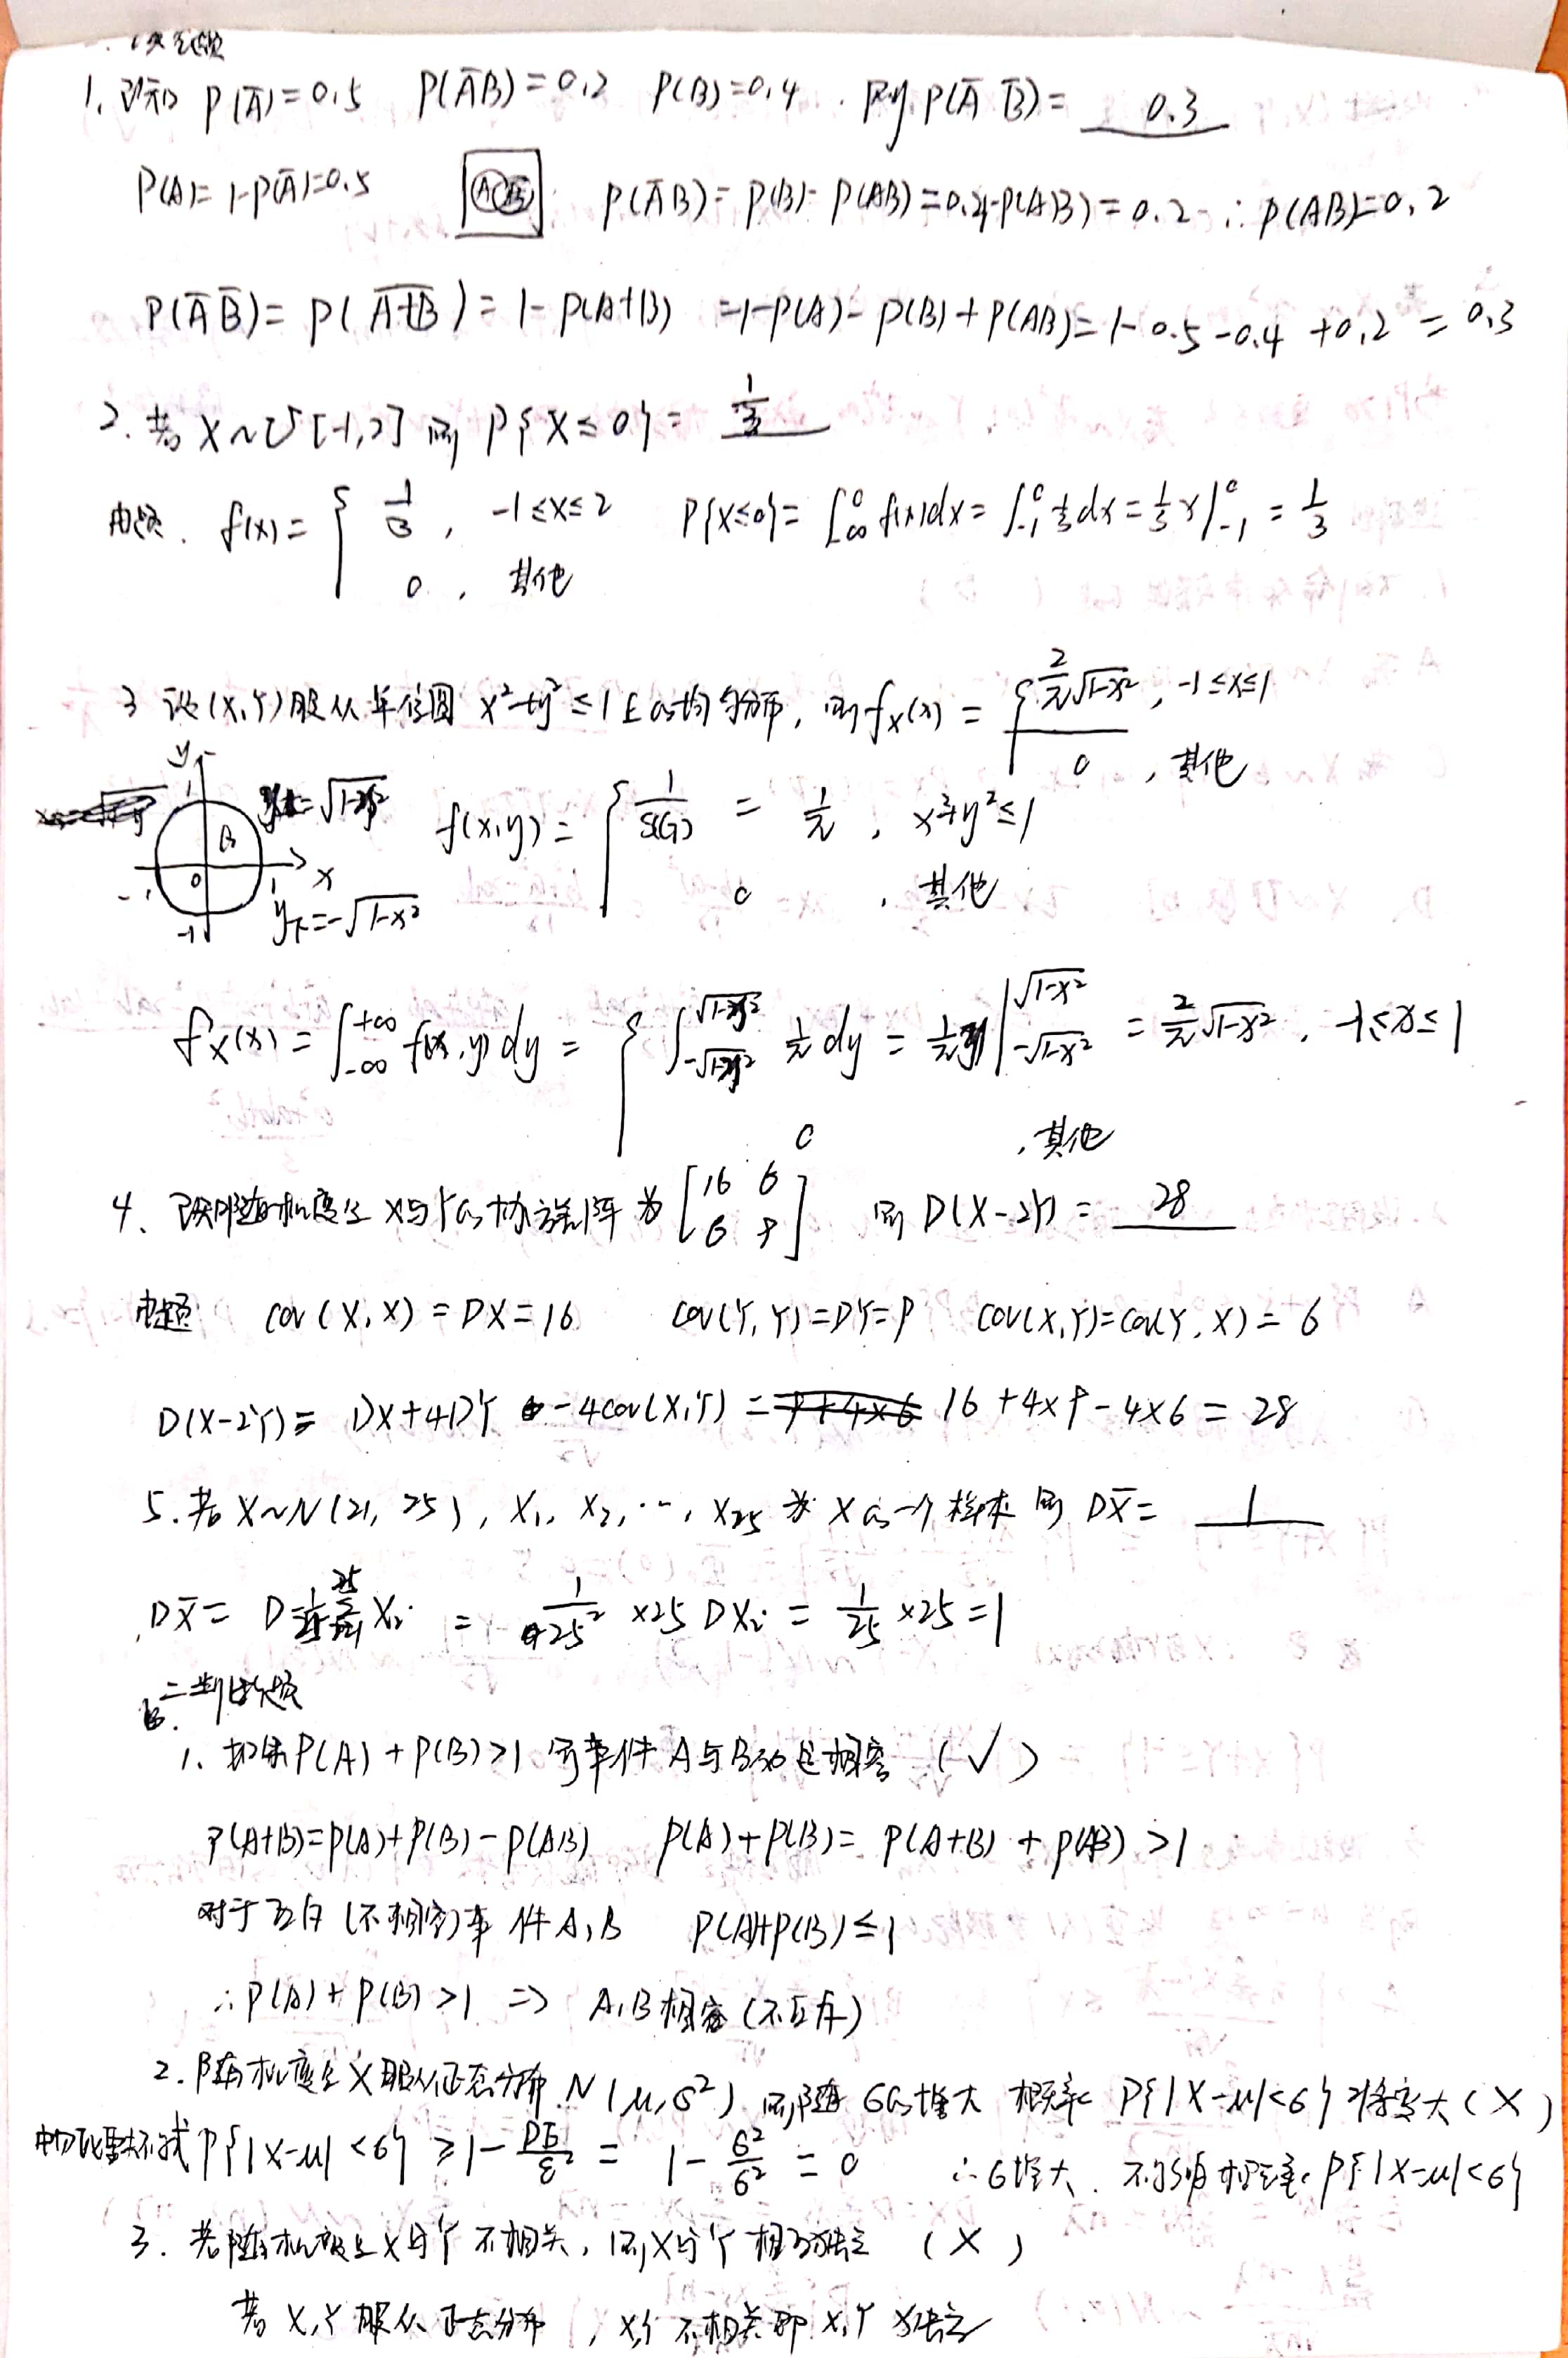 一、填空题
1. 已知 P(Ā)=0.5 P(ĀB)=0.2 P(B)=0.4 . 则 P(Ā B̄)= 0.3
P(A)=1-P(Ā)=0.5 A B P(ĀB)=P(B)-P(AB)=0.4-P(AB)=0.2 ∴P(AB)=0.2
P(Ā B̄)=P(\overline{A+B})=1-P(A+B) =1-P(A)-P(B)+P(AB)=1-0.5-0.4+0.2=0.3
2. 若 X~U[-1,2] 则 P{X≤0}= 1/3
由题. f(x)={ 1/3 , -1≤x≤2 P{X≤0}=∫_{-∞}^0 f(x)dx=∫_{-1}^0 1/3 dx=1/3 x|_{-1}^0=1/3
0 , 其他
3 设(X,Y)服从单位圆 x²+y²≤1上的均匀分布, 则f_X(x)={ 2/π √(1-x²) , -1≤x≤1
0 , 其他
y 1 0 x -1 1 -1 y下=-√(1-x²)
f(x,y)={ 1/S(G) = 1/π , x²+y²≤1
0 , 其他
f_X(x)=∫_{-∞}^{+∞} f(x,y)dy={ ∫_{-√(1-x²)}^{√(1-x²)} 1/π dy = 1/π y|_{-√(1-x²)}^{√(1-x²)} = 2/π √(1-x²) , -1≤x≤1
0 , 其他
4、已知随机变量X与Y的协方差阵为 [16 6
6 9] 则 D(X-2Y)= 28
由题 cov(X,X)=DX=16 cov(Y,Y)=DY=9 cov(X,Y)=cov(Y,X)=6
D(X-2Y)= DX+4DY -4cov(X,Y)= 16+4×9-4×6=28
5. 若 X~N(21, 25), X₁, X₂, …, X₂₅ 为 X 的一个样本 则 DX̄= 1
DX̄= D 1/25 Σ_{i=1}^{25} Xᵢ = 1/25² ×25 DXᵢ = 1/25 ×25=1
二 判断题
1. 如果P(A)+P(B)>1 则事件 A与B必定相容 (√)
P(A+B)=P(A)+P(B)-P(AB) P(A)+P(B)=P(A+B)+P(AB)>1
对于互斥(不相容)事件A,B P(A)+P(B)≤1
∴P(A)+P(B)>1 => A,B相容(不互斥)
2. 随机变量X服从正态分布 N(μ,σ²) 则随 σ的增大 概率 P{|X-μ|<σ} 将变大 (×)
P{|X-μ|<σ} ≥1- /ε² = 1-σ²/σ² = 0 ∴σ增大. 不影响概率 P{|X-μ|<σ}
3. 若随机变量X与Y 不相关, 则X与Y 相互独立 (×)
若 X,Y 服从正态分布 , X,Y 不相关即 X,Y 独立